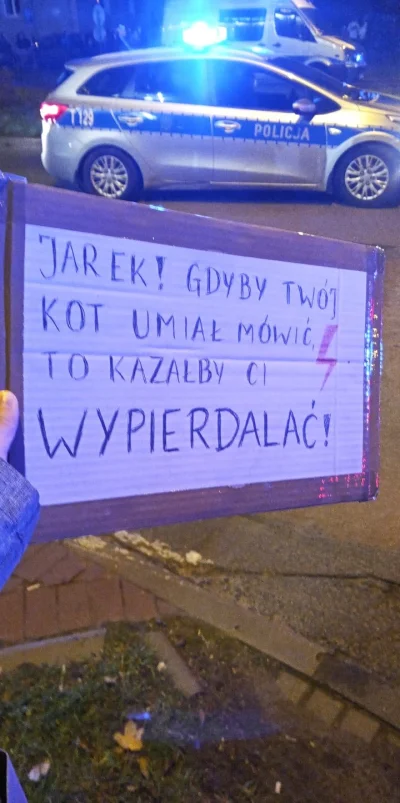 T129
POLICJA
JAREK! GDYBY TWÓJ
KOT UMIAŁ MÓWIĆ,
TO KAZAŁBY CI
WYPIERDALAĆ!